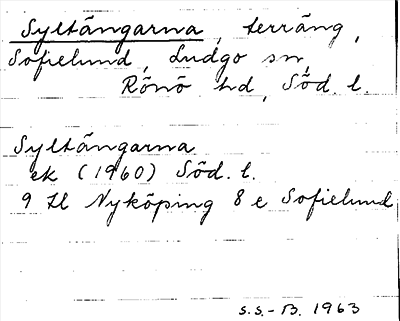 Syltängarna, terräng,
Sofielund, Ludgo sn,
Rönö hd, Söd. l.
Syltängarna
ek (1960) Söd. l.
9 H Nyköping 8 e Sofielund
S.S.-B. 1963